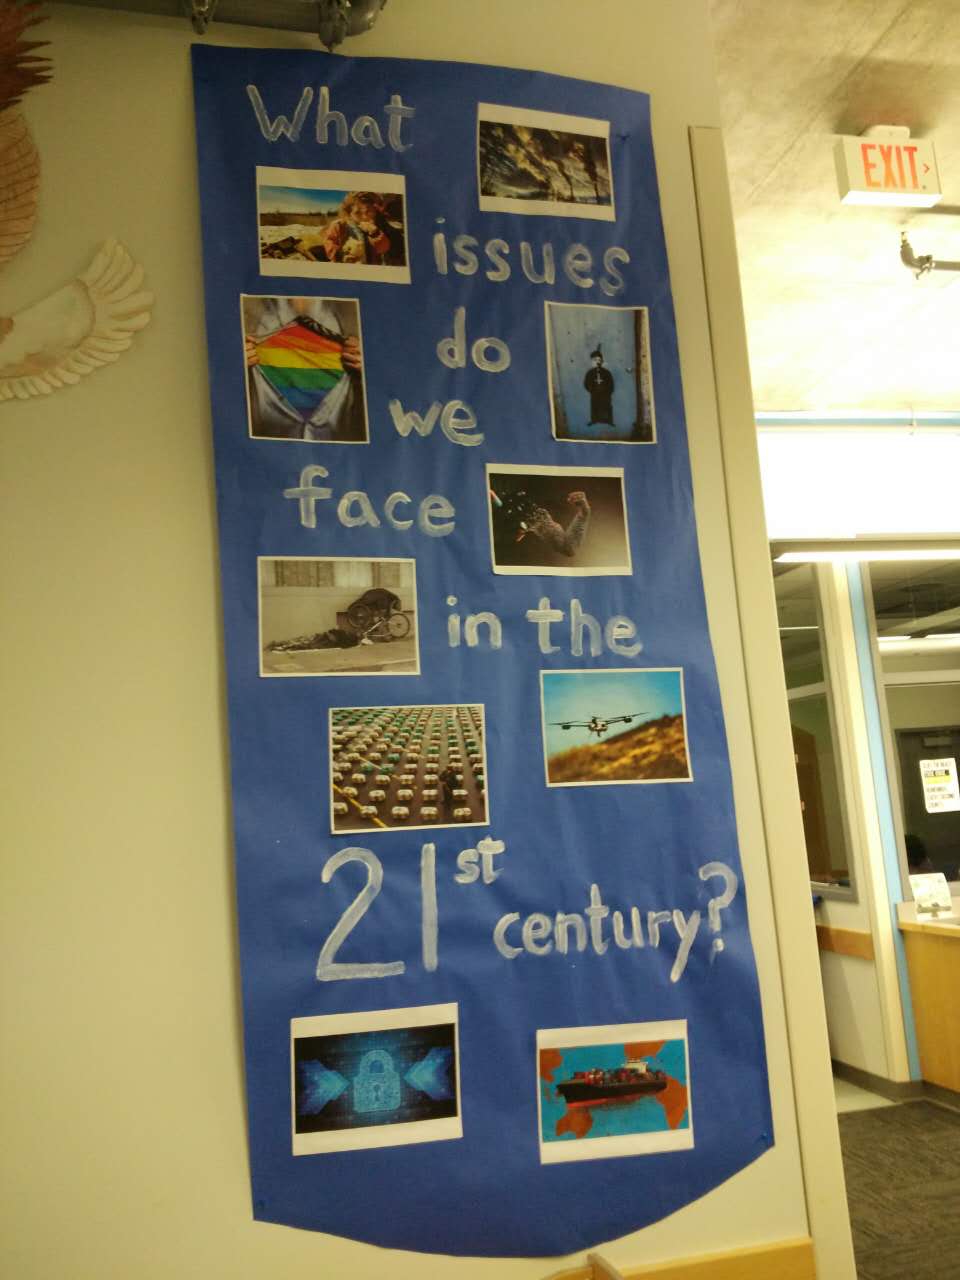 What
issues
do
we
face
in the
21st
century?
EXIT